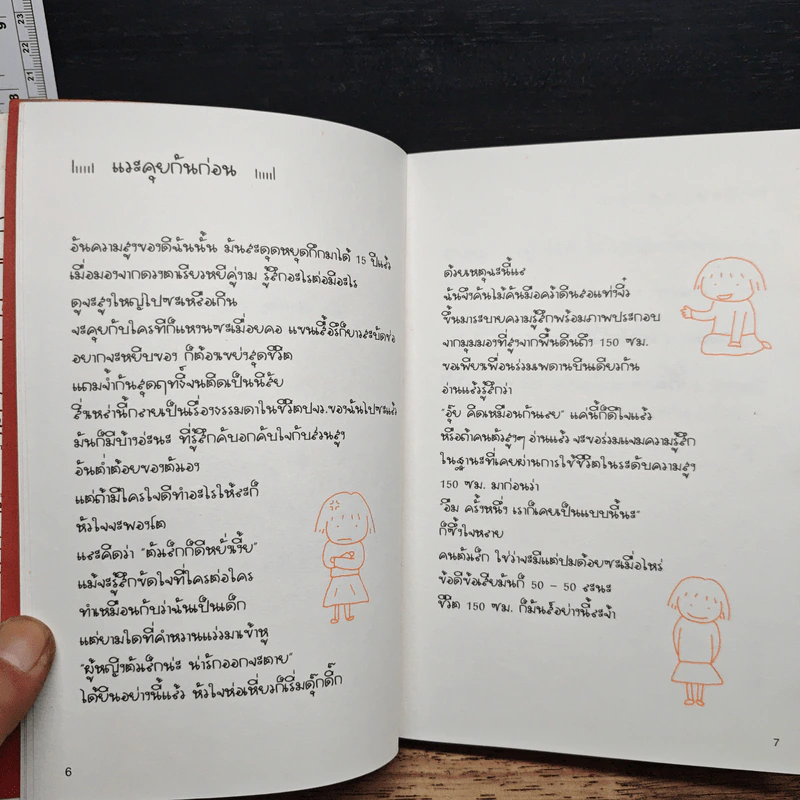 23
22
21
9
8
แวะคุยกันก่อน
อันความสูงของดีฉันนั้น มันสะดุดหยุดกึกมาได้ 15 ปีแล้ว
เมื่อมองจากดวงตาเรียวหยีคู่งาม รู้สึกอะไรต่อมิอะไร
ดูจะสูงใหญ่ไปซะเหลือเกิน
จะคุยกับใครทีก็แหงนซะเมื่อยคอ แขนเสื้อรึก็ยาวสะบัดช่อ
อยากจะหยิบของ ก็ต้องเขย่งสุดชีวิต
แถมจ้ำกันสุดฤทธิ์จนติดเป็นนิสัย
สิ่งเหล่านี้กลายเป็นเรื่องธรรมดาในชีวิตปจว.ของฉันไปซะแล้ว
มันก็มีบ้างอ่ะนะ ที่รู้สึกคับอกคับใจกับส่วนสูง
อันต่ำต้อยของตัวเอง
แต่ถ้ามีใครใจดีทำอะไรให้ละก็
หัวใจจะพองโต
และคิดว่า "ตัวเล็กก็ดีหยั่งงี้ย"
แม้จะรู้สึกขัดใจที่ใครต่อใคร
ทำเหมือนกับว่าฉันเป็นเด็ก
แต่ยามใดที่คำหวานแว่วมาเข้าหู
"ผู้หญิงตัวเล็กน่ะ น่ารักออกจะตาย"
ได้ยินอย่างนี้แล้ว หัวใจห่อเหี่ยวก็เริ่มดุ๊กดิ๊ก
6
ด้วยเหตุฉะนี้แร
ฉันจึงค้นไม้ค้นมือคว้าดินสอแท่งจิ๋ว
ขึ้นมาระบายความรู้สึกพร้อมภาพประกอบ
จากมุมมองที่สูงจากพื้นดินถึง 150 ซม.
ขอเพียงเพื่อนร่วมเพดานบินเดียวกัน
อ่านแล้วรู้สึกว่า
"อุ๊ย คิดเหมือนกันเลย" แค่นี้ก็ดีใจแล้ว
หรือถ้าคนตัวสูงๆ อ่านแล้ว จะขอร่วมแจมความรู้สึก
ในฐานะที่เคยผ่านการใช้ชีวิตในระดับความสูง
150 ซม. มาก่อนว่า
"อืม ครั้งหนึ่ง เราก็เคยเป็นแบบนี้นะ"
ก็ซึ้งใจหลาย
คนตัวเล็ก ใช่ว่าจะมีแต่ปมด้อยซะเมื่อไหร่
ข้อดีข้อเสียมันก็ 50 - 50 ละนะ
ชีวิต 150 ซม. ก็มันส์อย่างนี้ละจ้า
7